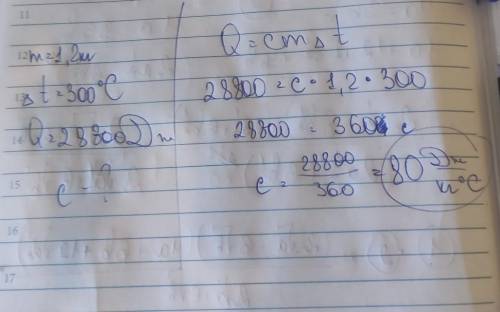 11
12 m=1,2м
13 Δt=300°C
14 Q=28800Dж
15 c-?
16
17
Q=cmΔt
28800=c·1,2·300
28800=360 c
c=28800/360=80 Dж/к°C